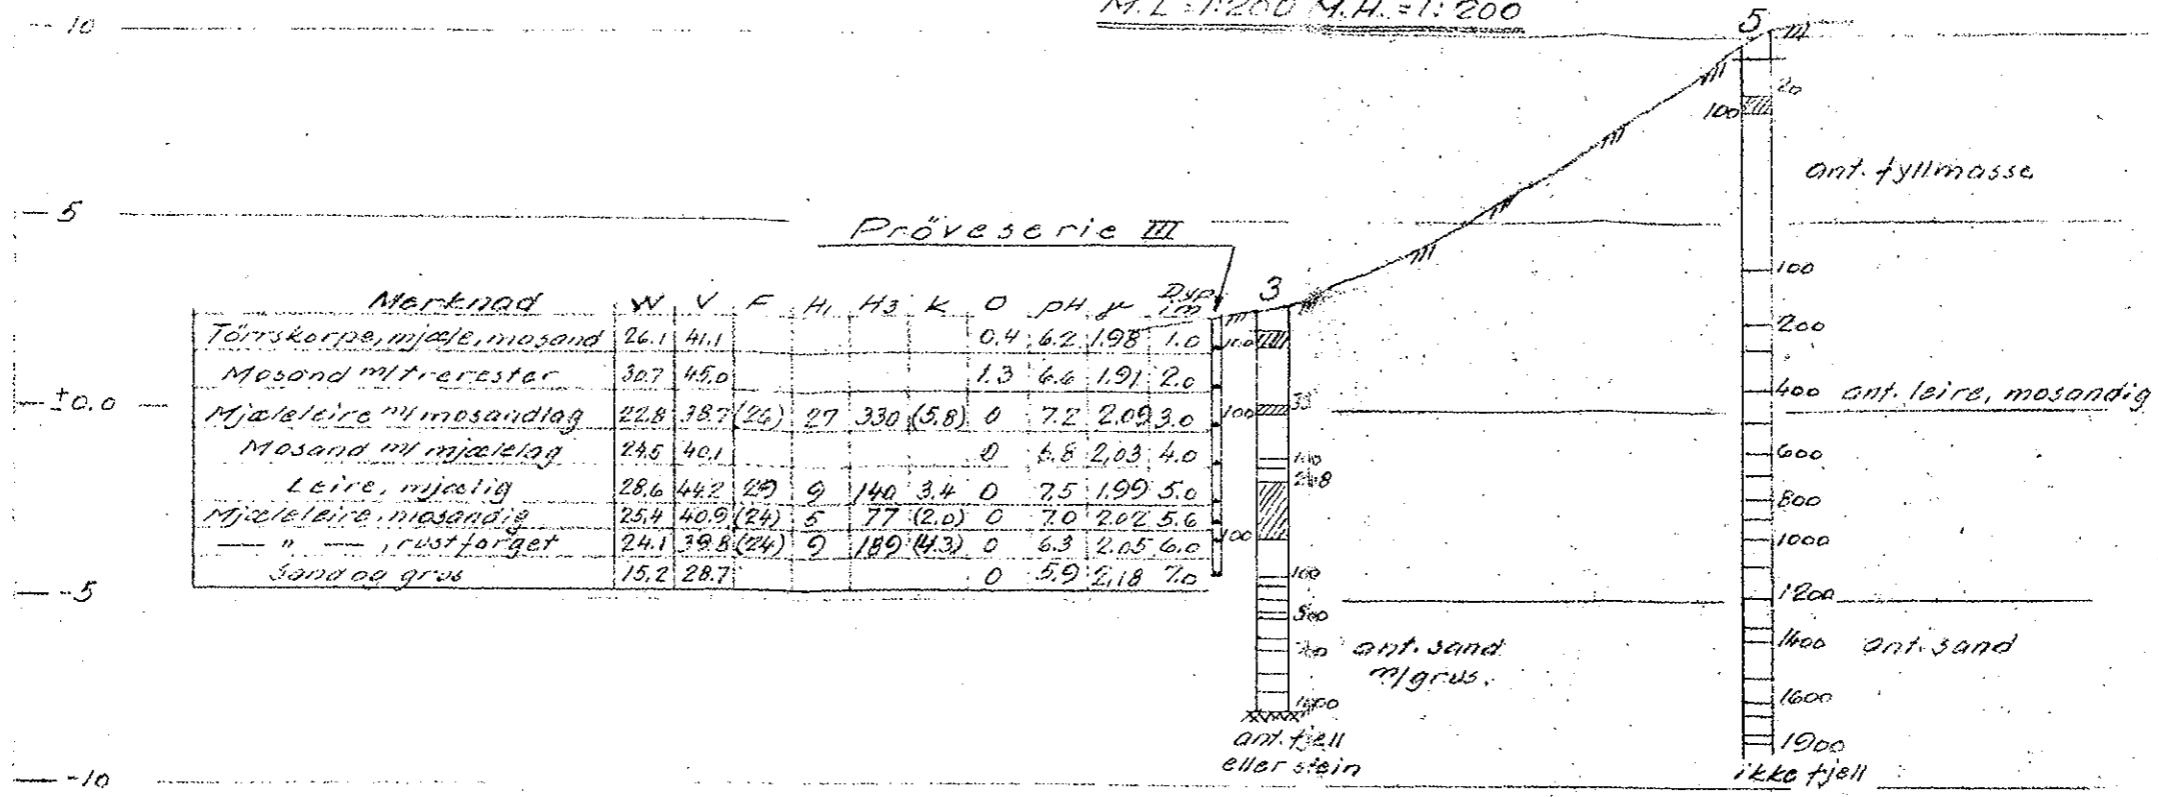 M.L = 1:200 M.H. = 1:200
10
5
±0.0
-5
-10
Pröveserie III
Merknad W V F H1 H3 K O pH γ Dyp i m
Törrskorpe, mjæle, mosand 26.1 41.1 0.4 6.2 1.98 1.0
Mosand m/trerester 30.7 45.0 1.3 6.6 1.91 2.0
Mjæleleire m/mosandlag 22.8 38.7 (26) 27 330 (5.8) 0 7.2 2.09 3.0
Mosand m/ mjælelag 24.5 40.1 0 6.8 2.03 4.0
Leire, mjælig 28.6 44.2 29 9 140 3.4 0 7.5 1.99 5.0
Mjæleleire, mosandig 25.4 40.9 (24) 5 77 (2.0) 0 7.0 2.02 5.6
— " — , rustfarget 24.1 39.8 (24) 9 189 (4.3) 0 6.3 2.05 6.0
Sand og grus 15.2 28.7 0 5.9 2.18 7.0
3
100
33
100
100
100
500
ant. sand
m/grus.
ant. fjell
eller stein
5
20
100
ant. fyllmasse
100
200
400 ant. leire, mosandig
600
800
1000
1200
1400 ant. sand
1600
1900
ikke fjell